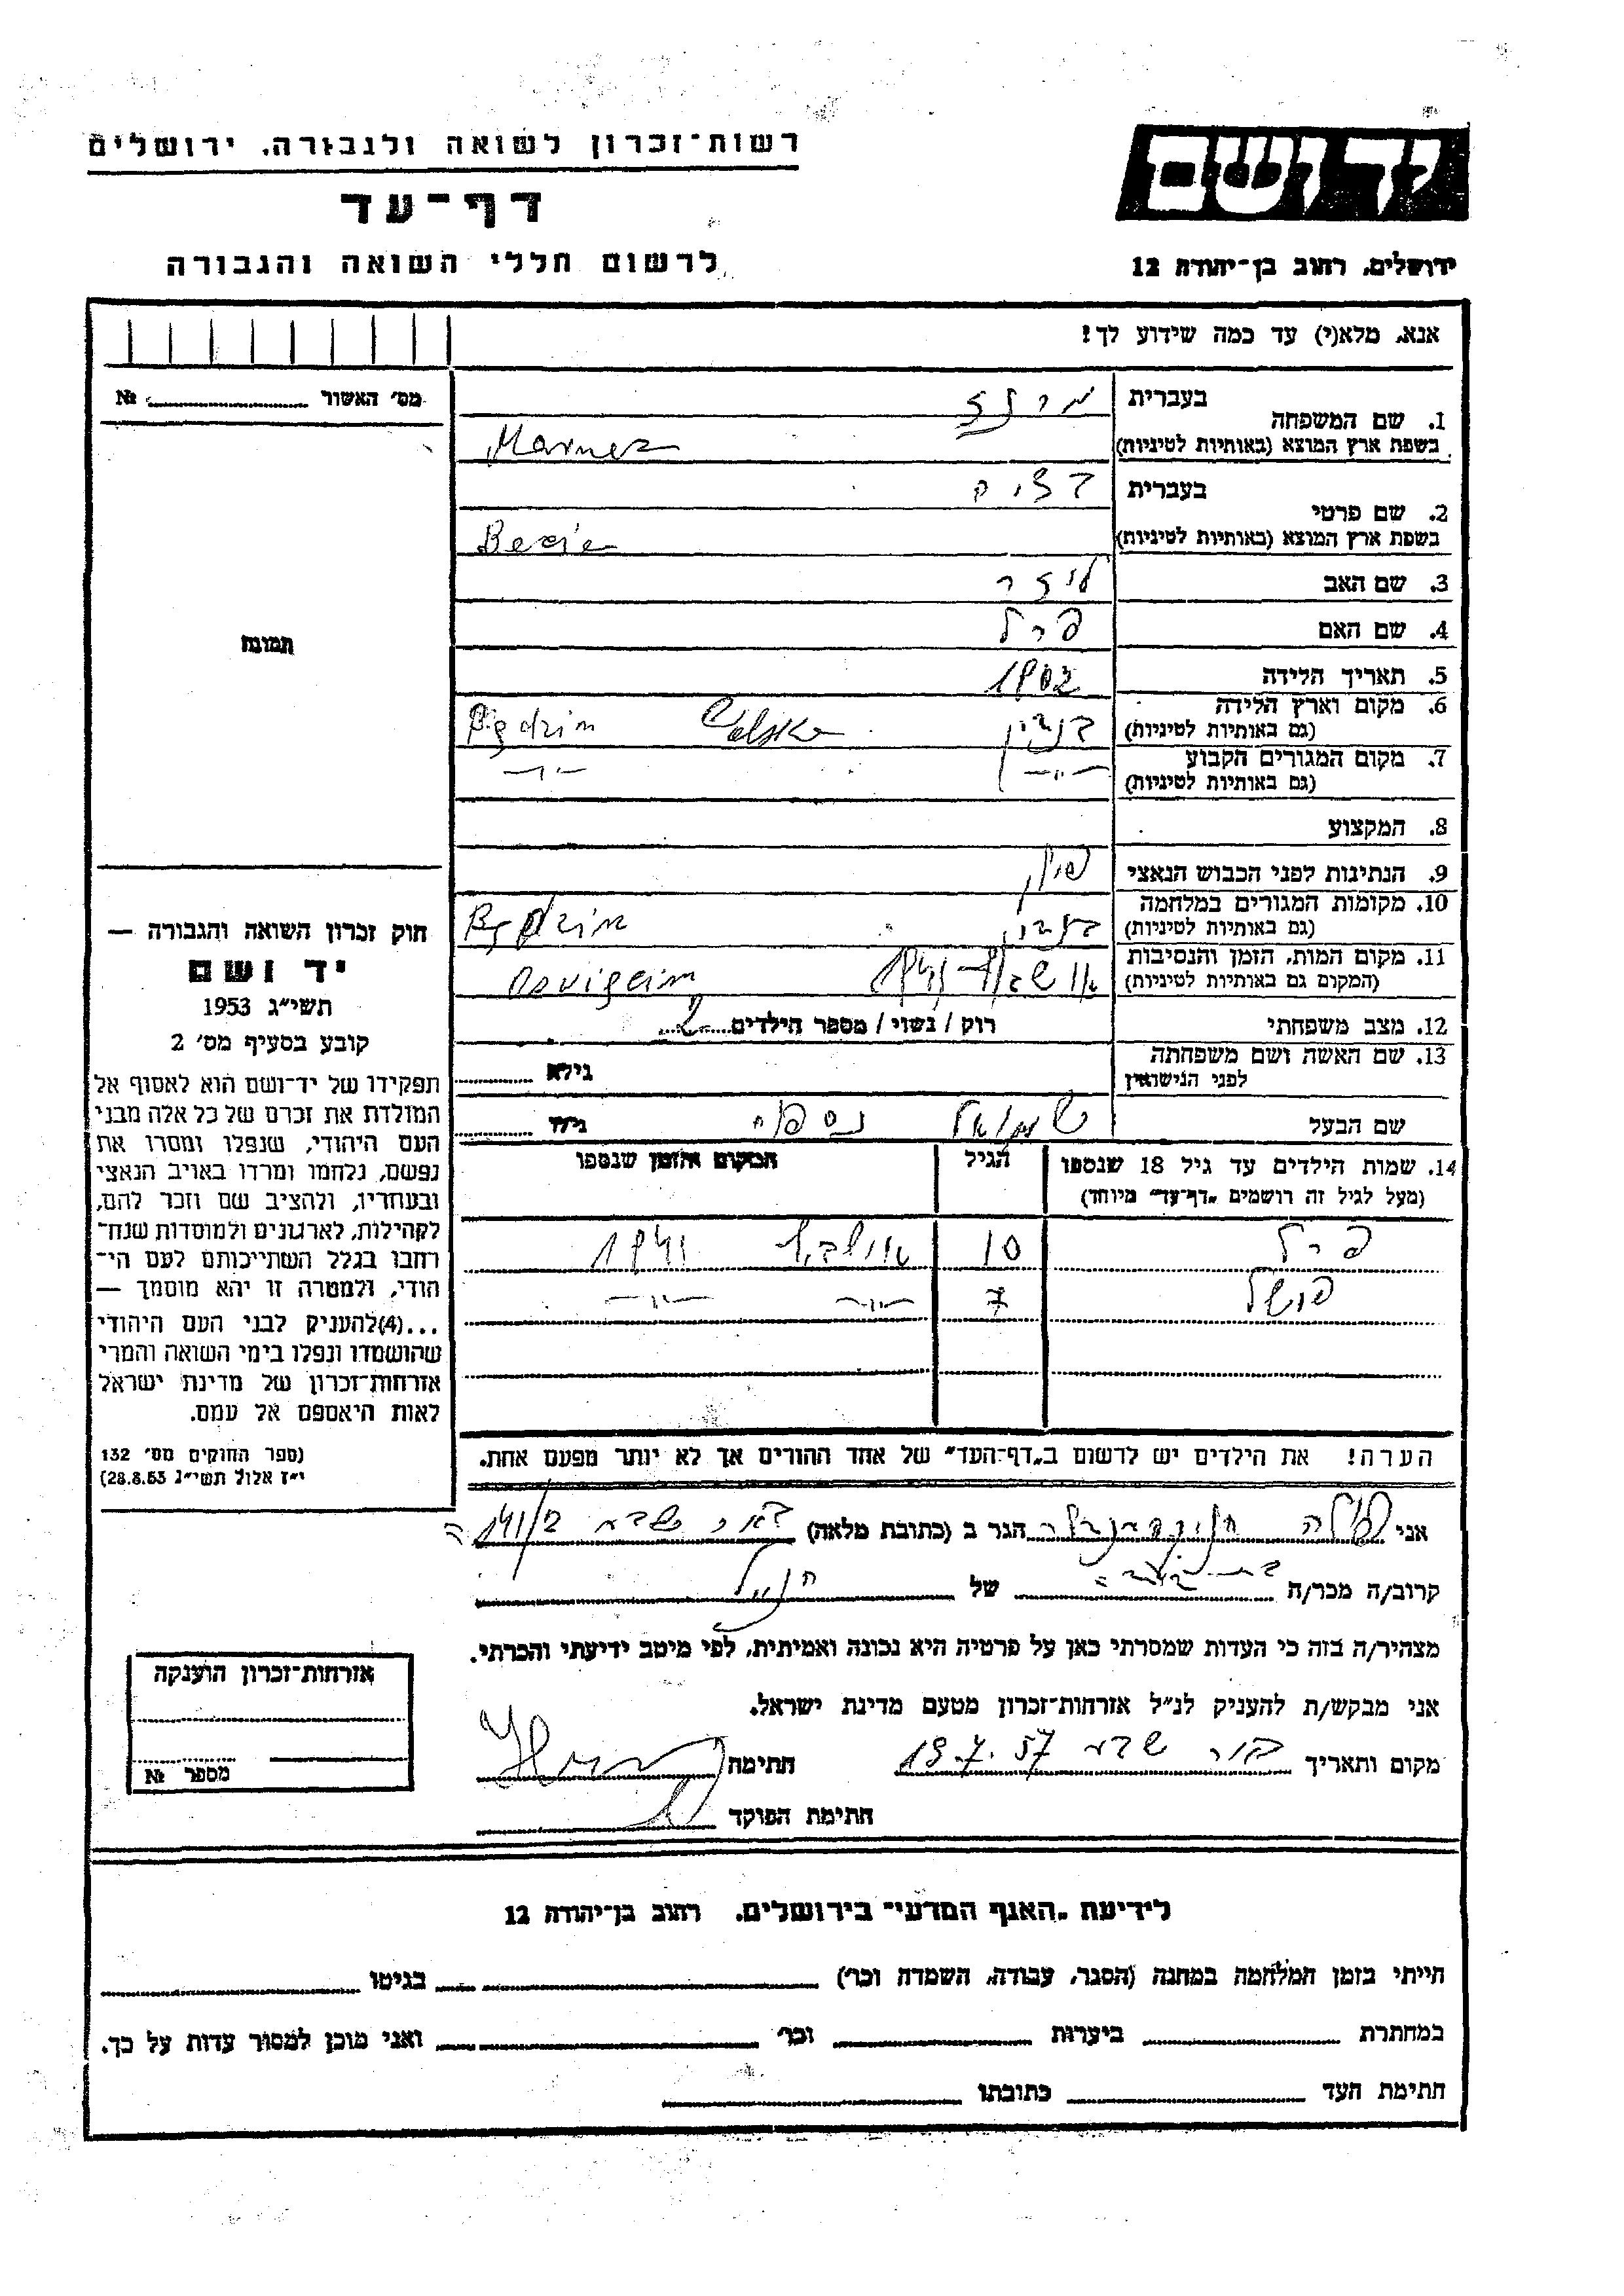 רשות-זכרון לשואה ולגבורה, ירושלים
דף-עד
לרשום חללי השואה והגבורה
יד ושם
ירושלים, רחוב בן-יהודה 12
אנא, מלא(י) עד כמה שידוע לך!
מס' האשור №
תמונה
1. שם המשפחה
בעברית
בשפת ארץ המוצא (באותיות לטיניות)
2. שם פרטי
בעברית
בשפת ארץ המוצא (באותיות לטיניות)
3. שם האב
4. שם האם פרל
5. תאריך הלידה 1902
6. מקום וארץ הלידה
(גם באותיות לטיניות) בנדין Polska
7. מקום המגורים הקבוע
(גם באותיות לטיניות) -"- -"-
8. המקצוע
9. הנתינות לפני הכבוש הנאצי פולן
10. מקומות המגורים במלחמה
(גם באותיות לטיניות)
11. מקום המות, הזמן והנסיבות
(המקום גם באותיות לטיניות)
12. מצב משפחתי רוק / נשוי / מספר הילדים 2
13. שם האשה ושם משפחתה
לפני הנישואין גילא
שם הבעל שמואל נספה גילו
14. שמות הילדים עד גיל 18 שנספו הגיל המקום והזמן שנספו
(מעל לגיל זה רושמים "דף-עד" מיוחד)
פרל 10
7 -"- -"-
הערה! את הילדים יש לרשום ב"דף-העד" של אחד ההורים אך לא יותר מפעם אחת.
חוק זכרון השואה והגבורה —
יד ושם
תשי"ג 1953
קובע בסעיף מס' 2
תפקידו של יד-ושם הוא לאסוף אל
המולדת את זכרם של כל אלה מבני
העם היהודי, שנפלו ומסרו את
נפשם, נלחמו ומרדו באויב הנאצי
ובעוזריו, ולהציב שם וזכר להם,
לקהילות, לארגונים ולמוסדות שנח-
רחבו בגלל השתייכותם לעם הי-
הודי, ולמטרה זו יהא מוסמך —
...(4)להעניק לבני העם היהודי
שהושמדו ונפלו בימי השואה והמרי
אזרחות-זכרון של מדינת ישראל
לאות היאספם אל עמם.
(ספר החוקים מס' 132
י"ז אלול תשי"ג 28.8.53)
אני הגר ב (כתובת מלאה) באר שבע
קרוב/ה מכר/ה של
מצהיר/ה בזה כי העדות שמסרתי כאן על פרטיה היא נכונה ואמיתית, לפי מיטב ידיעתי והכרתי.
אני מבקש/ת להעניק לנ"ל אזרחות-זכרון מטעם מדינת ישראל.
מקום ותאריך באר שבע 19.7.57 חתימה
חתימת הפוקד
אזרחות-זכרון הוענקה
מספר №
לידיעת "האגף המדעי" בירושלים, רחוב בן-יהודה 12
הייתי בזמן המלחמה במחנה (הסגר, עבודה, השמדה וכו') בגיטו
במחתרת ביערות וכו' ואני מוכן למסור עדות על כך.
חתימת העד כתובתו